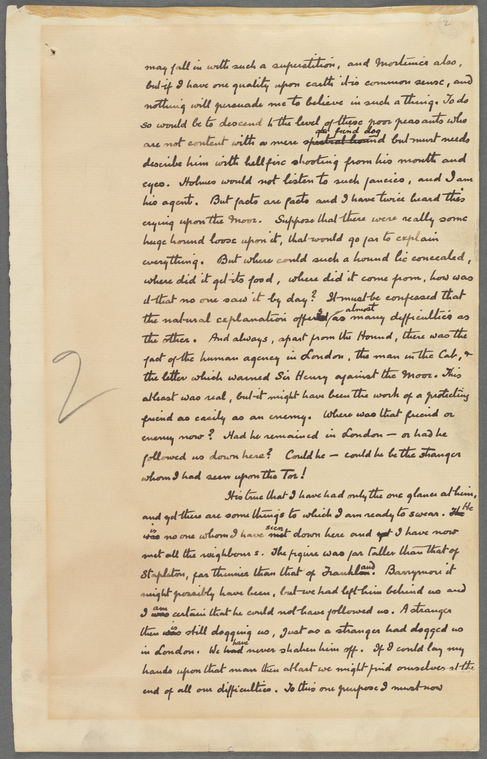 2
may fall in with such a superstition, and Mortimer also,
but if I have one quality upon earth it is common sense, and
nothing will persuade me to believe in such a thing. To do
so would be to descend to the level of these poor peasants who
are not content with a mere spectral hound fiend dog but must needs
describe him with hellfire shooting from his mouth and
eyes. Holmes would not listen to such fancies, and I am
his agent. But facts are facts and I have twice heard this
crying upon the Moor. Suppose that there were really some
huge hound loose upon it, that would go far to explain
everything. But where could such a hound lie concealed,
where did it get its food, where did it come from, how was
it that no one saw it by day? It must be confessed that
the natural explanation offers almost as many difficulties as
the other. And always, apart from the Hound, there was the
fact of the human agency in London, the man in the Cab, &
the letter which warned Sir Henry against the Moor. This
at least was real, but it might have been the work of a protecting
friend as easily as an enemy. Where was that friend or
enemy now? Had he remained in London — or had he
followed us down here? Could he — could he be the stranger
whom I had seen upon the Tor!
It is true that I have had only the one glance at him,
and yet there are some things to which I am ready to swear. He
was is no one whom I have met seen down here and yet I have now
met all the neighbours. The figure was far taller than that of
Stapleton, far thinner than that of Frankland. Barrymore it
might possibly have been, but we had left him behind us and
I was am certain that he could not have followed us. A stranger
then was is still dogging us, just as a stranger had dogged us
in London. We had have never shaken him off. If I could lay my
hands upon that man then at last we might find ourselves at the
end of all our difficulties. To this one purpose I must now
2